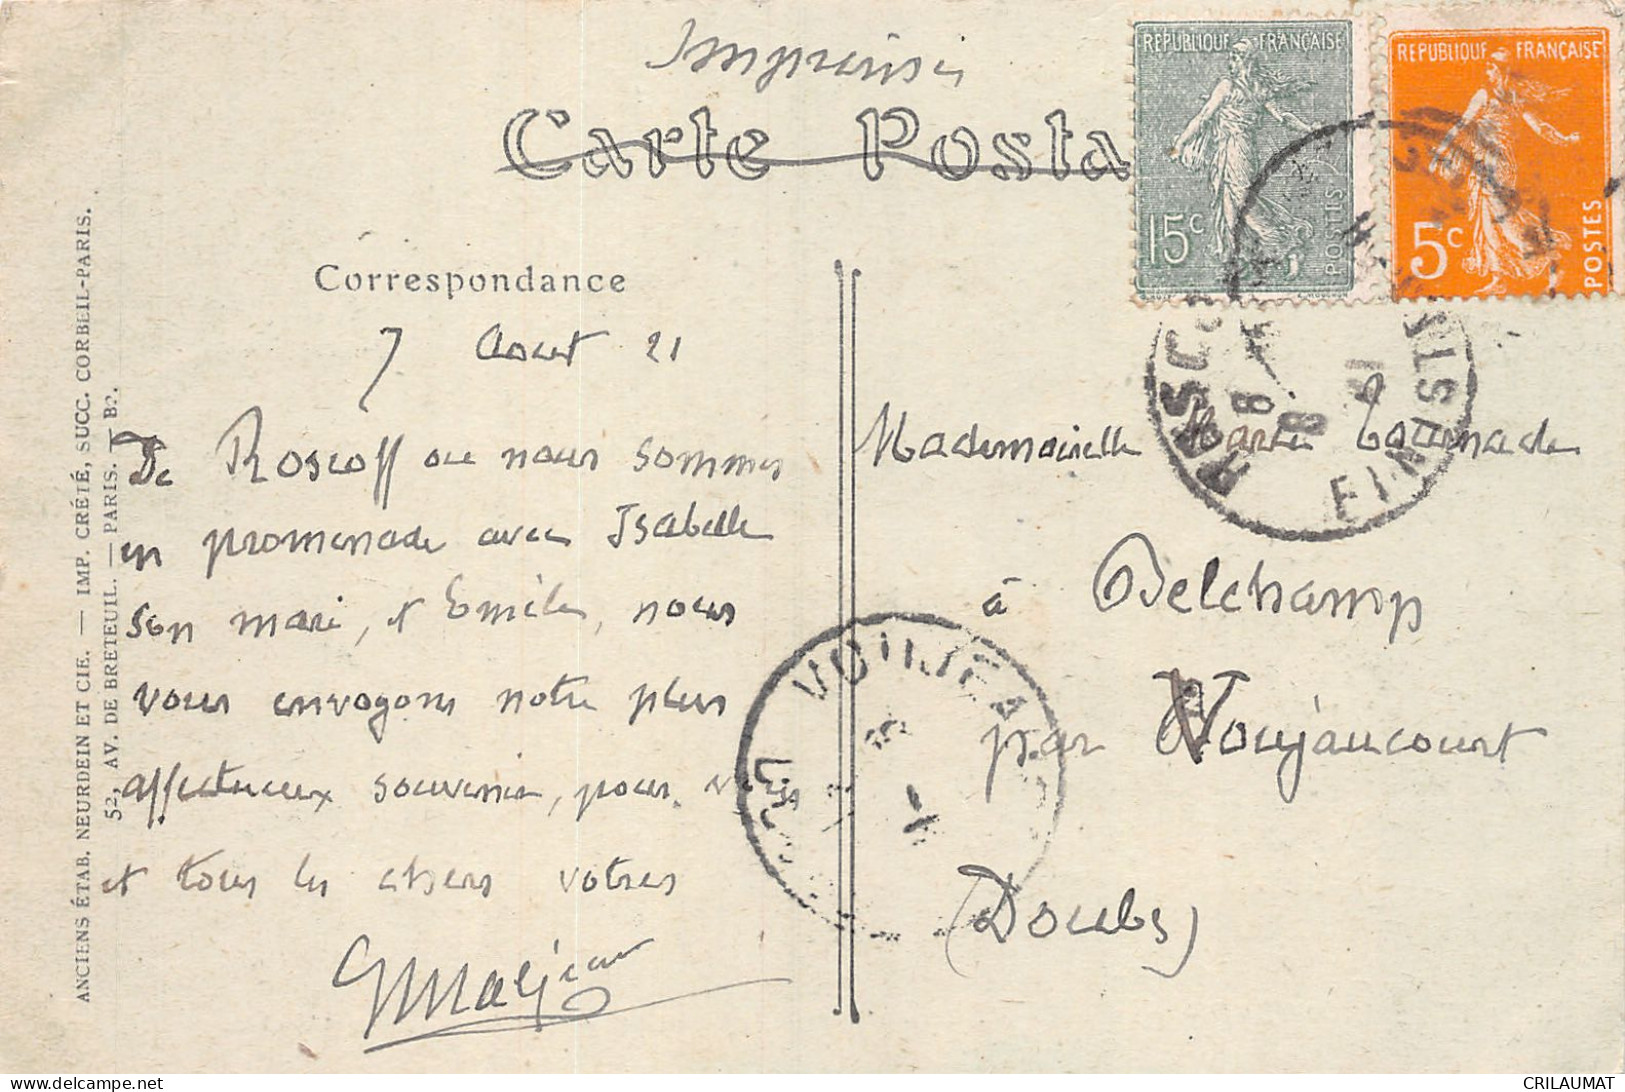 Imprimés
Carte Posta
RÉPUBLIQUE FRANÇAISE
15c
POSTES
RÉPUBLIQUE FRANÇAISE
5c
POSTES
FINIST
Correspondance
7 Aout 21
De Roscoff ou nous sommes
en promenade avec Isabelle
son mari, et Emile, nous
vous envoyons notre plus
affectueux souvenir, pour vous
et tous les chers votres
Mademoiselle Marie Tournade
à Belchamp
par Voujaucourt
(Doubs)
VOUJEA
ANCIENS ÉTAB. NEURDEIN ET CIE. — IMP. CRÉTÉ, SUCC. CORBEIL-PARIS.
52, AV. DE BRETEUIL. — PARIS. — B?.
CRILAUMAT